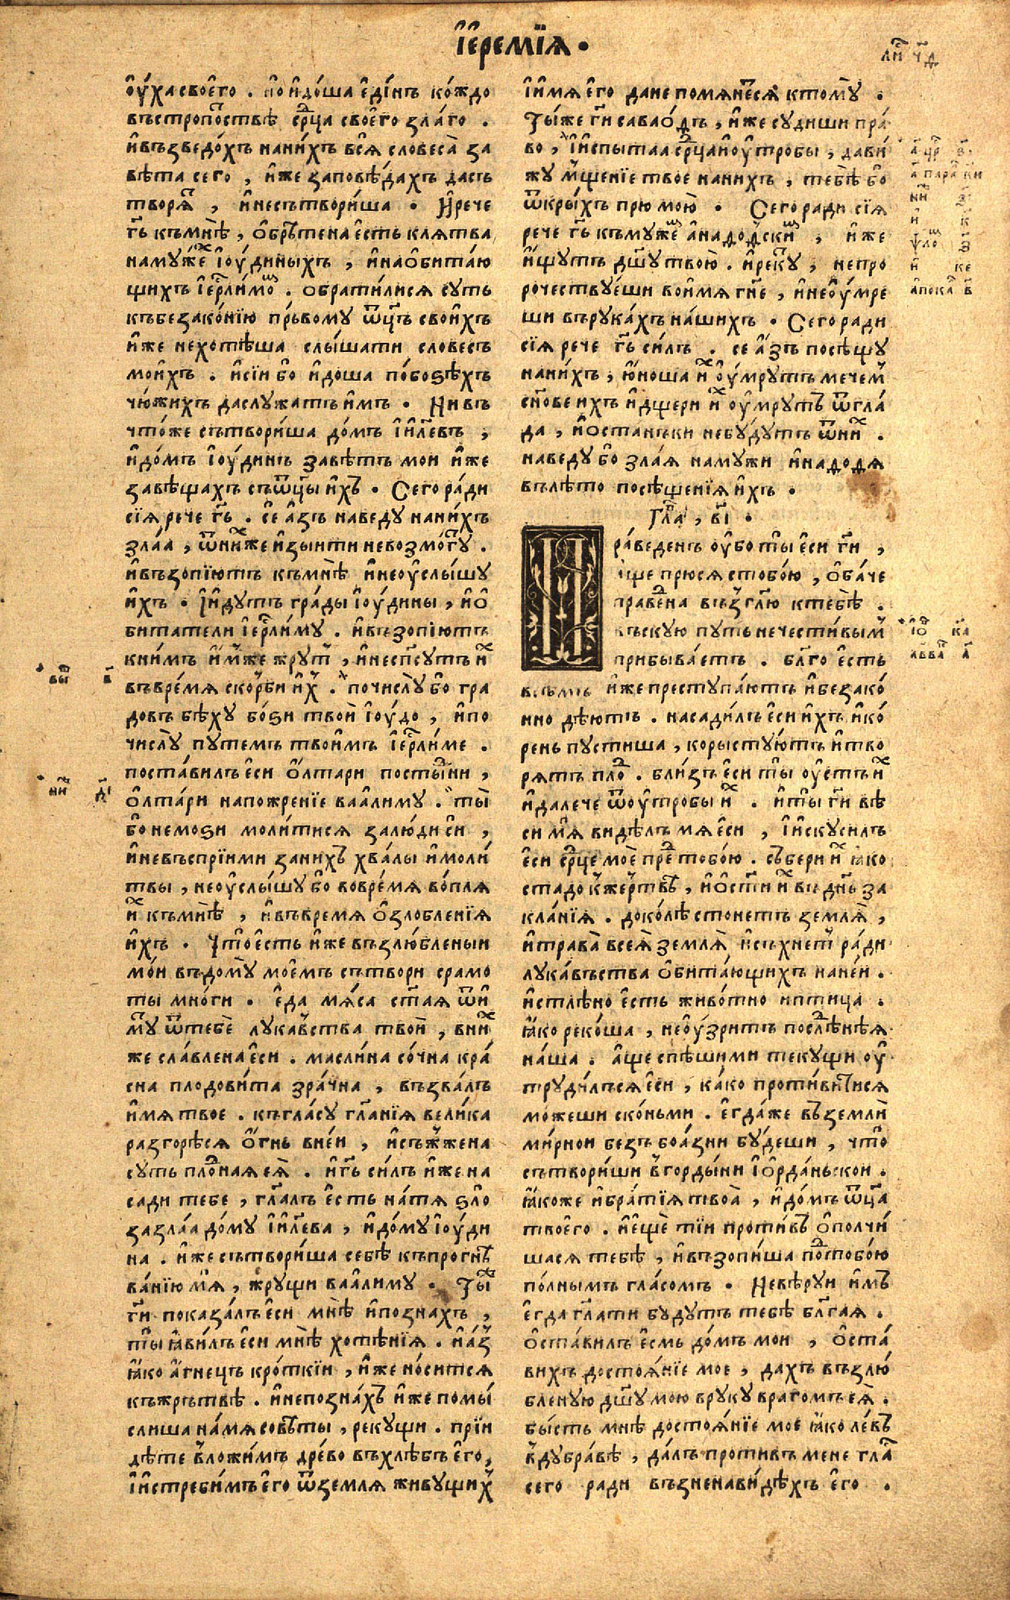 І҆еремїѧ .
оу҆́ха своего̀ . но и҆до́ша є҆ди́нъ ко́ждо
въ стропотствѣ ср҃ца своего̀ зла́го .
и҆ възведо́хъ на ни́хъ всѧ̀ словеса̀ за
вѣ́та сего , и҆́же заповѣ́дахъ дасъ
творѧ́т , и҆ несътвори́ша . И҆ рече
гь҃ къ мнѣ̀ , ѻ҆брѣ́тена є҆сть клѧ́тва
на муже́х і҆оу́диныхъ , и҆ на ѻ҆бита́ю
щихъ і҆ер҃ли́мѣ . ѻ҆брати́лисѧ суть
къ безако́нїю пръвому ѡ҆ц҃ъ свои́хъ
и҆́же нехотѣ́ша слы́шати словесъ
мои́хъ . и҆ сїи́ бо и҆до́ша по бо́ѕѣхъ
чю́жихъ да слу́жатъ и҆́мъ . Ни въ
что́же сътвори́ша до́мъ і҆и҃левъ ,
и҆ до́мъ і҆оу́динъ завѣ́тъ мои и҆́же
завѣща́хъ съ ѡ҆ц҃ы и҆́хъ . Сего ра́ди
сїѧ̀ рече гь҃ . се а҆́зъ наведу на ни́хъ
зла́а , ѿ ни́хже и҆зы́нти невозмо́гу .
и҆ възопїю́тъ къ мнѣ̀ и҆ неоу҆слы́шу
и҆́хъ . І҆ и҆́дутъ гра́ды і҆оу́дины , и҆ ѻ҆
битатели і҆ер҃ли́му . и҆ възопїю́тъ
к ни́мъ и҆́мже жру́т , и҆ неспсу́тъ и҆́х
въ вре́мѧ ско́рби и҆́х . по числу̀ бо гра
довъ бѣ́ху бо́ѕи твоѝ і҆оу́до , и҆ по
числу̀ путе́мъ твои́мъ і҆ер҃ли́ме .
поста́вилъ є҆си ѻ҆лтари посты́ни ,
ѻ҆лта́ри на пожре́нїе ваали́му . ты̀
бо немоѕи моли́тисѧ за лю́ди сїи ,
и҆ невъспрїими за ни́хъ хвалы̀ и҆ моли́
твы , неоу҆слы́шу бо во вре́мѧ во́плѧ
и҆́х къ мнѣ̀ , и҆ въ вре́мѧ ѻ҆злобле́нїѧ
и҆́хъ . Что̀ є҆сть и҆́же възлю́бленыи
мо́и въ до́му мое́мъ сътвори срамо
ты мно́ги . є҆да мѧ́са ст҃аѧ ѿи
му́т ѿ тебѐ лука́вства твоѝ , в ни́х
же сла́влена є҆си . масли́на со́чна кра́
сна плодови́та зра́чна , възва́лъ
и҆́мѧ твое . къ гла́су гл҃а́нїѧ вели́ка
разгорѣ́сѧ ѻ҆́гнь в не́и , и҆ съжже́на
суть пло́днаѧ еѧ̀ . и҆ гь҃ си́лъ и҆́же на
сади тебе , гл҃алъ є҆сть на́ тѧ ѕло
за зла́а до́му і҆и҃лева , и҆ до́му і҆оу́ди
на . и҆́же сътвори́ша себѣ̀ къ прогнѣ́
ва́нїю мѧ̀ , жру́щи ваали́му . Ты́ж
гн҃и показа́лъ є҆си мнѣ̀ и҆ позна́хъ ,
ты̀ ꙗ҆ви́лъ є҆си мнѣ̀ хотѣ́нїѧ . и҆ а҆́з
ꙗ҆́ко а҆́гнецъ кро́ткїи , и҆́же но́ситсѧ
къ жрътвѣ . и҆ непозна́хъ и҆́же помы́
слиша на́ мѧ совѣты , рекущи . прїи
дѣ́те вложи́мъ дре́во въ хлѣ́бъ є҆го̀ ,
і҆ и҆стреби́мъ є҆го ѿ землѧ̀ живу́щих
и҆́ и҆́мѧ є҆го да непомѧне́тсѧ к тому̀ .
Ты́же гн҃и савао́дъ , и҆́же су́диши пра́
во , і҆ и҆спыта́а ср҃ца и҆ оу҆тробы , да ви́
жу мще́нїе твое на ни́хъ , тебѣ̀ бо
ѿкры́хъ прю мою̀ . Сего ради сїѧ
рече гь҃ къ муже́м а҆надо́дски́м , и҆́же
и҆́щутъ дш҃у твою̀ . и҆ реку́т , непро
рочествуеши во и҆́мѧ гн҃е , и҆ неоу҆мре
ши въ рука́хъ на́шихъ . Сего ради
сїѧ̀ рече гь҃ си́лъ . се а҆́зъ посѣщу
на ни́хъ , ю҆́ноша и҆́х оу҆́мрутъ мече́м
сн҃ове и҆хъ и҆ дще́ри и҆́х оу҆́мрутъ ѿ гла́
да , и҆ ѻ҆ста́нъки небу́дутъ ѿ ни́х .
наведу́ бо зла́ѧ на мужи а҆надо́дѧ
въ лѣ́то посѣще́нїѧ и҆́хъ .
Гла́ , в҃і .
ра́веденъ оу҆бо ты̀ є҆си гн҃и ,
а҆ще прюсѧ с тобо́ю , ѻ҆ба́че
пра́ведна възгл҃ю к тебѣ̀ .
въскую путь нечести́вым
прибыва́етъ . бл҃го є҆сть
въсѣмъ и҆́же преступа́ютъ и҆ безако́
нно дѣютъ . насади́лъ є҆си и҆́хъ и҆ ко́
рень пусти́ша , корыствую́тъ и҆ тво
рѧ́тъ пло́д . бли́зъ є҆си ты̀ оу҆́стъ и҆́х
и҆ дале́че ѿ оу҆тробы и҆́х . и҆ ты̀ гн҃и вѣ
си мѧ̀ видѣ́лъ мѧ є҆си , і҆ и҆скуси́лъ
є҆си ср҃це моѐ пред тобо́ю . събери и҆́х ꙗ҆ко
стадо к же́ртвѣ , и҆ ѻ҆сти и҆́х въ дн҃ь за
кла́нїѧ . доко́лѣ сто́нетъ землѧ̀ ,
и҆ трава̀ всеѧ̀ землѧ̀ и҆съхнет ра́ди
лука́въства ѻ҆бита́ющихъ на не́и .
и҆стлѣно є҆сть живо́тно и птица .
ꙗ҆́ко реко́ша , неоу҆́зритъ послѣ́днѣѧ
на́ша . а҆́ще с пѣ́шими теку́щи оу҆
труди́лъсѧ є҆си , ка́ко проти́витисѧ
мо́жеши с ко́ньми . є҆гда́же въ землѝ
ми́рнои безъ боа́зни бу́деши , что̀
сътвори́ши в горды́ни і҆ѻ҆рда́ньскои .
ꙗ҆́коже и҆ бра́тїѧ твоа̀ , и҆ до́мъ ѡ҆ц҃а
твоего . и҆ є҆щѐ тїи проти́въ ѻ҆полчи́
шасѧ тебѣ̀ , и҆ възопи́ша по́ тобо́ю
по́лнымъ гла́сомъ . Невѣ́руи и҆́мъ
є҆гда гл҃ати бу́дутъ тебѣ̀ бл҃га́ѧ .
Ѻ҆ста́вилъ є҆́смь до́мъ мои , ѻ҆ста́
вихъ достоѧ́нїе мое , да́хъ възлю́
бленую дш҃у мою в руку враго́мъ еѧ̀ .
бы́сть мнѣ̀ достоѧ́нїе мое ꙗ҆́ко ле́въ
в дубра́вѣ , да́лъ проти́въ мене гла́с
сего ради възненави́дѣхъ є҆го .